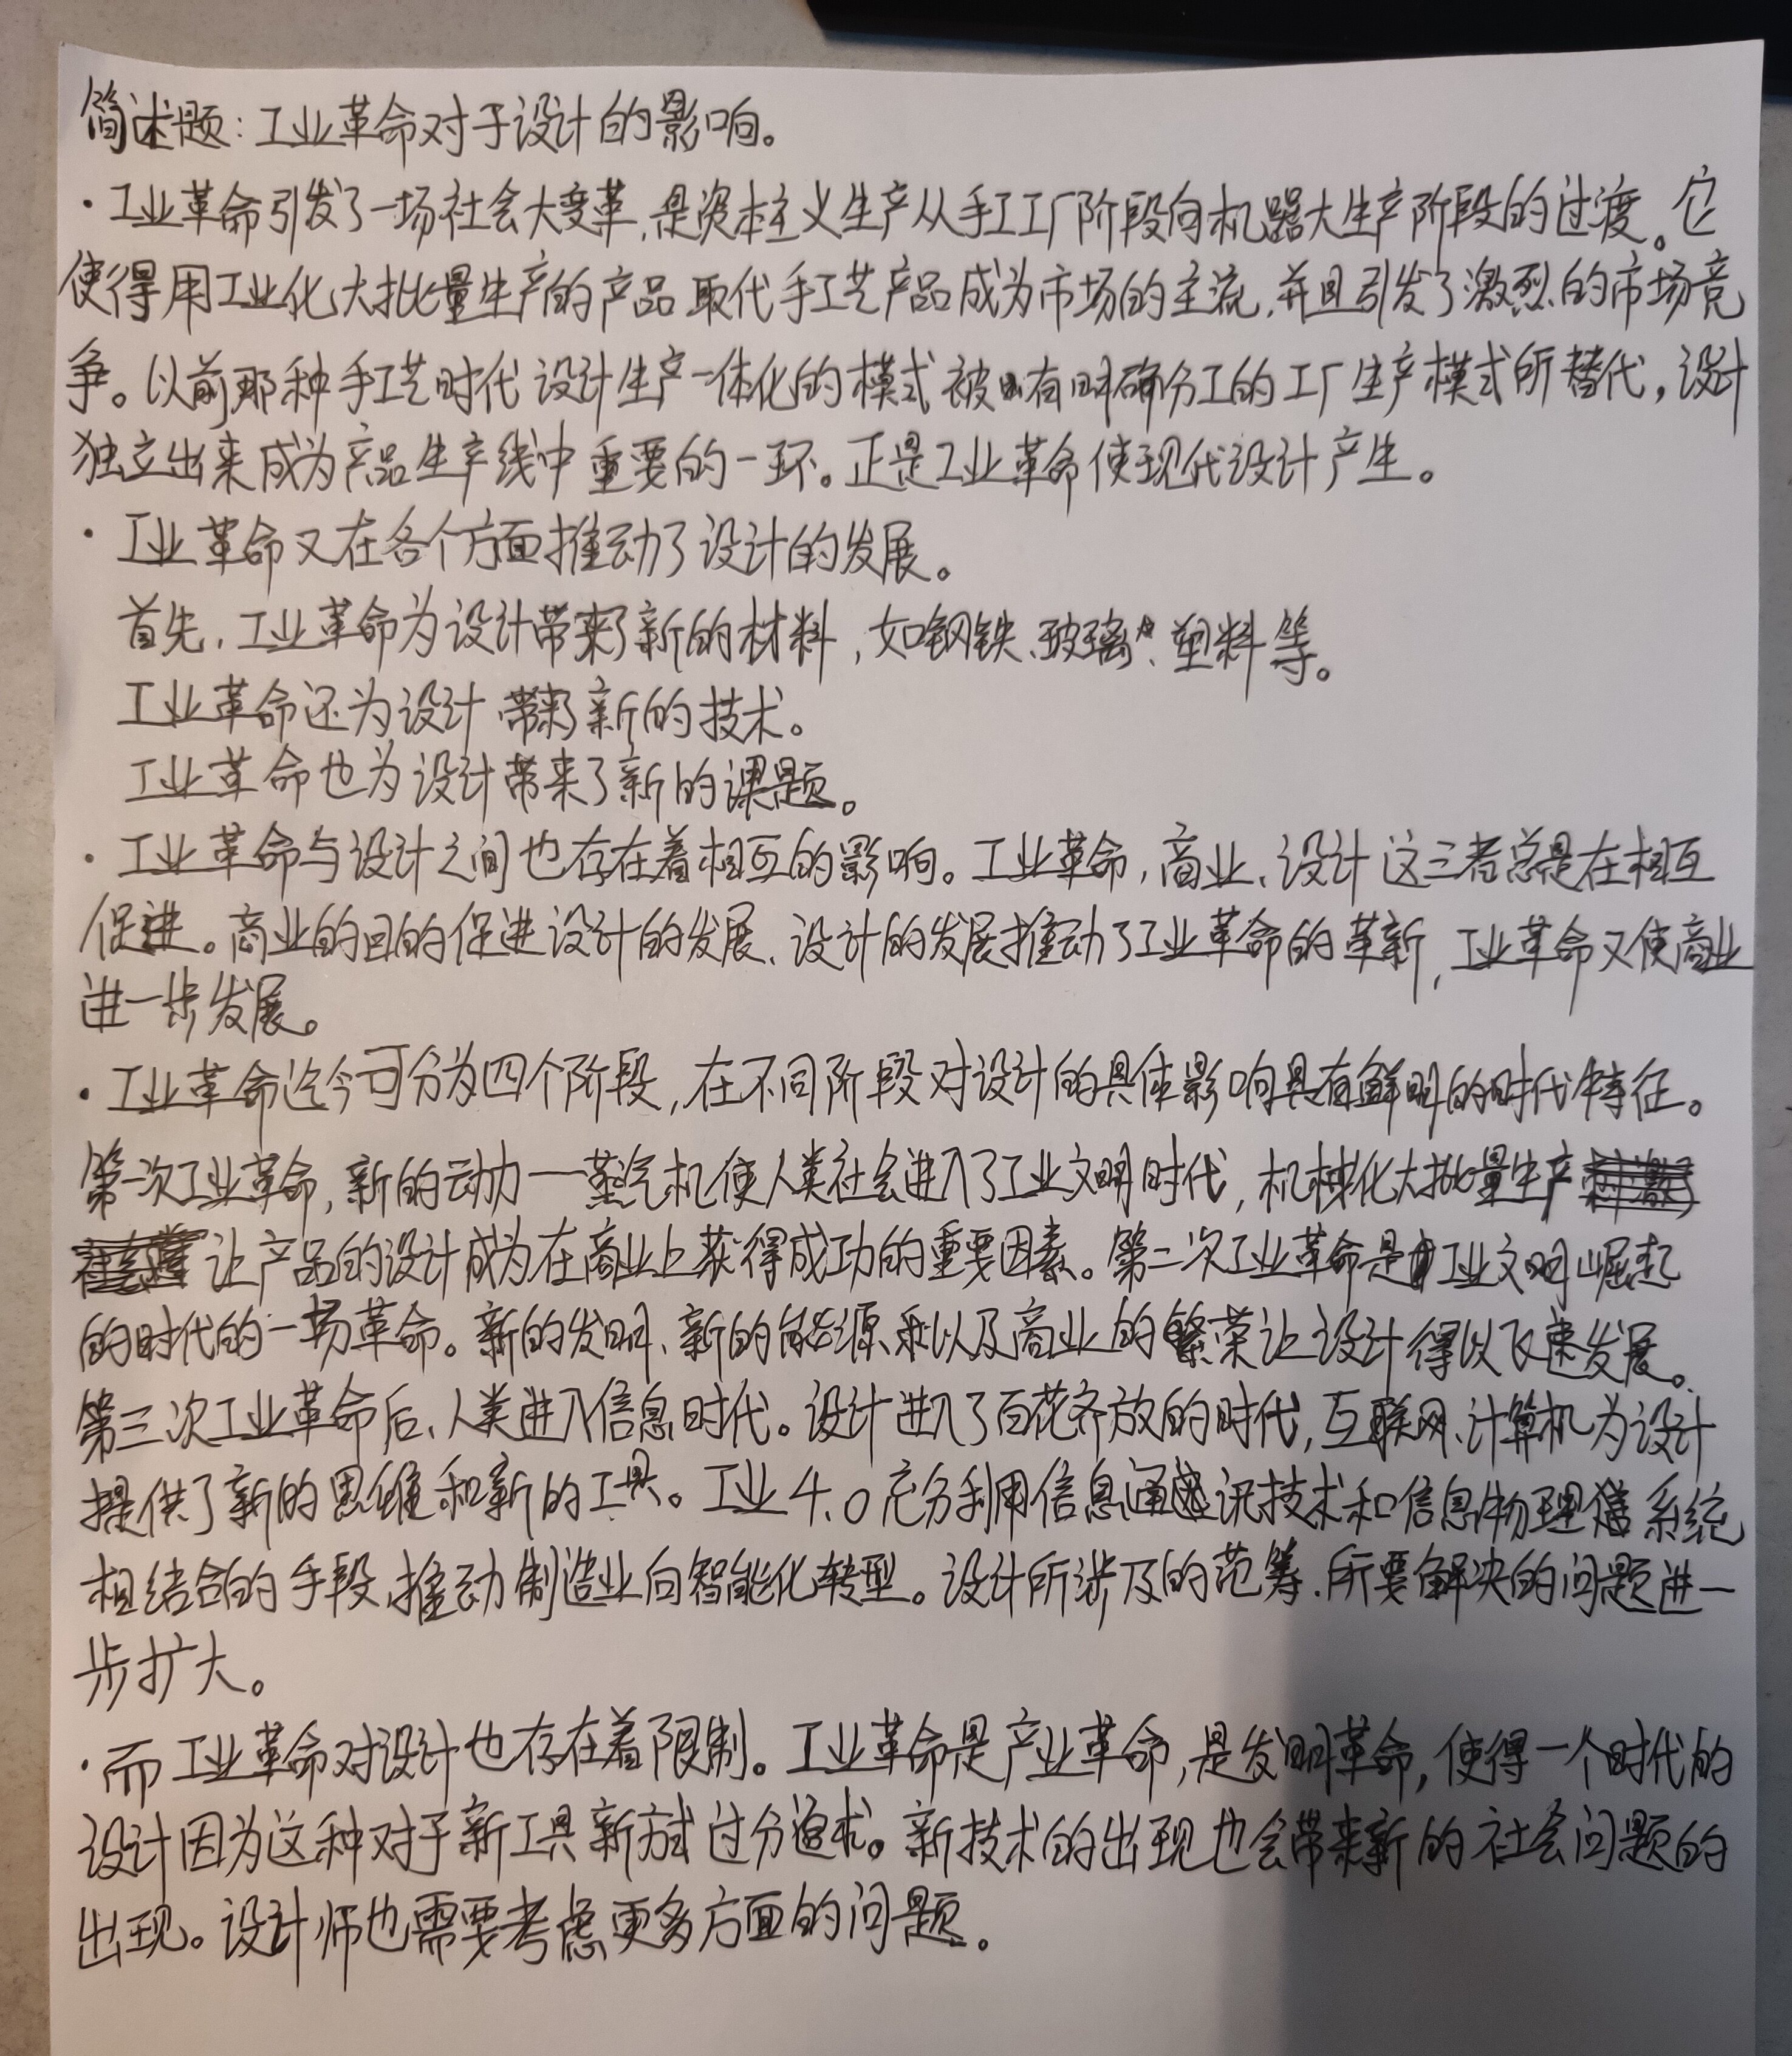 简述题：工业革命对于设计的影响。
·工业革命引发了一场社会大变革，是资本主义生产从手工工厂阶段向机器大生产阶段的过渡。它
使得用工业化大批量生产的产品取代手工艺产品成为市场的主流，并且引发了激烈的市场竞
争。以前那种手工艺时代设计生产一体化的模式被有明确分工的工厂生产模式所替代，设计
独立出来成为产品生产线中重要的一环。正是工业革命使现代设计产生。
·工业革命又在各个方面推动了设计的发展。
首先，工业革命为设计带来了新的材料，如钢铁、玻璃、塑料等。
工业革命还为设计带来了新的技术。
工业革命也为设计带来了新的课题。
·工业革命与设计之间也存在着相互的影响。工业革命，商业、设计这三者总是在相互
促进。商业的目的促进设计的发展、设计的发展推动了工业革命的革新，工业革命又使商业
进一步发展。
·工业革命迄今可分为四个阶段，在不同阶段对设计的具体影响具有鲜明的时代特征。
第一次工业革命，新的动力一蒸汽机使人类社会进入了工业文明时代，机械化大批量生产
让产品的设计成为在商业上获得成功的重要因素。第二次工业革命是工业文明崛起
的时代的一场革命。新的发明、新的能源以及商业的繁荣让设计得以飞速发展。
第三次工业革命后、人类进入信息时代。设计进入了百花齐放的时代，互联网、计算机为设计
提供了新的思维和新的工具。工业4.0充分利用信息通讯技术和信息物理系统
相结合的手段，推动制造业向智能化转型。设计所涉及的范筹、所要解决的问题进一
步扩大。
·而工业革命对设计也存在着限制。工业革命是产业革命，是发明革命，使得一个时代的
设计因为这种对于新工具新方式过分追求。新技术的出现也会带来新的社会问题的
出现。设计师也需要考虑更多方面的问题。